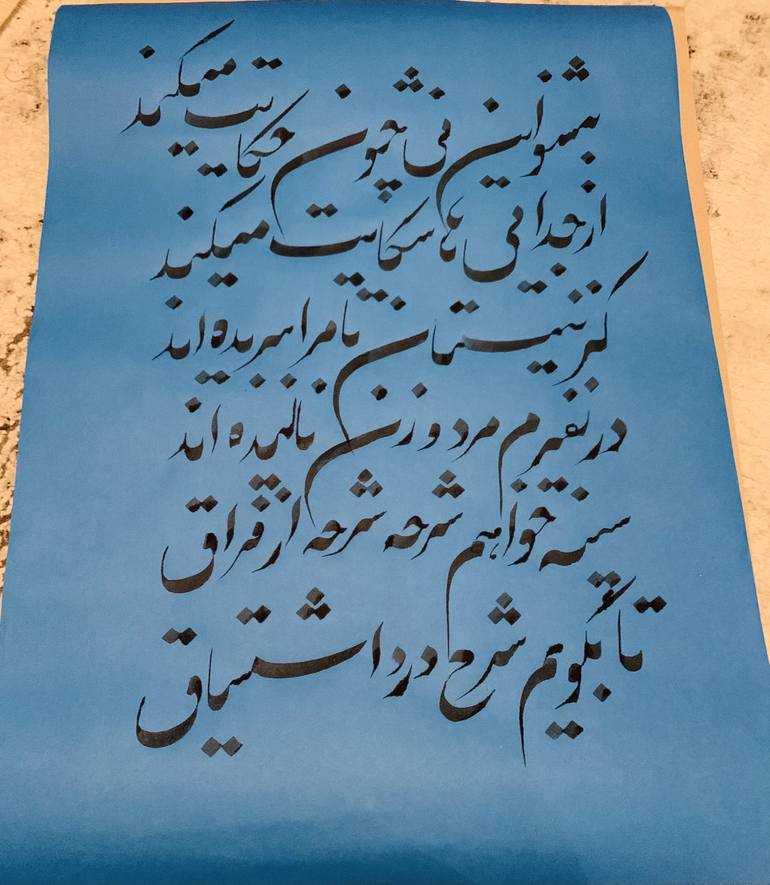 بشنو این نی چون حکایت میکند
از جدایی ها شکایت میکند
کز نیستان تا مرا ببریده اند
در نفیرم مرد و زن نالیده اند
سینه خواهم شرحه شرحه از فراق
تا بگویم شرح درد اشتیاق